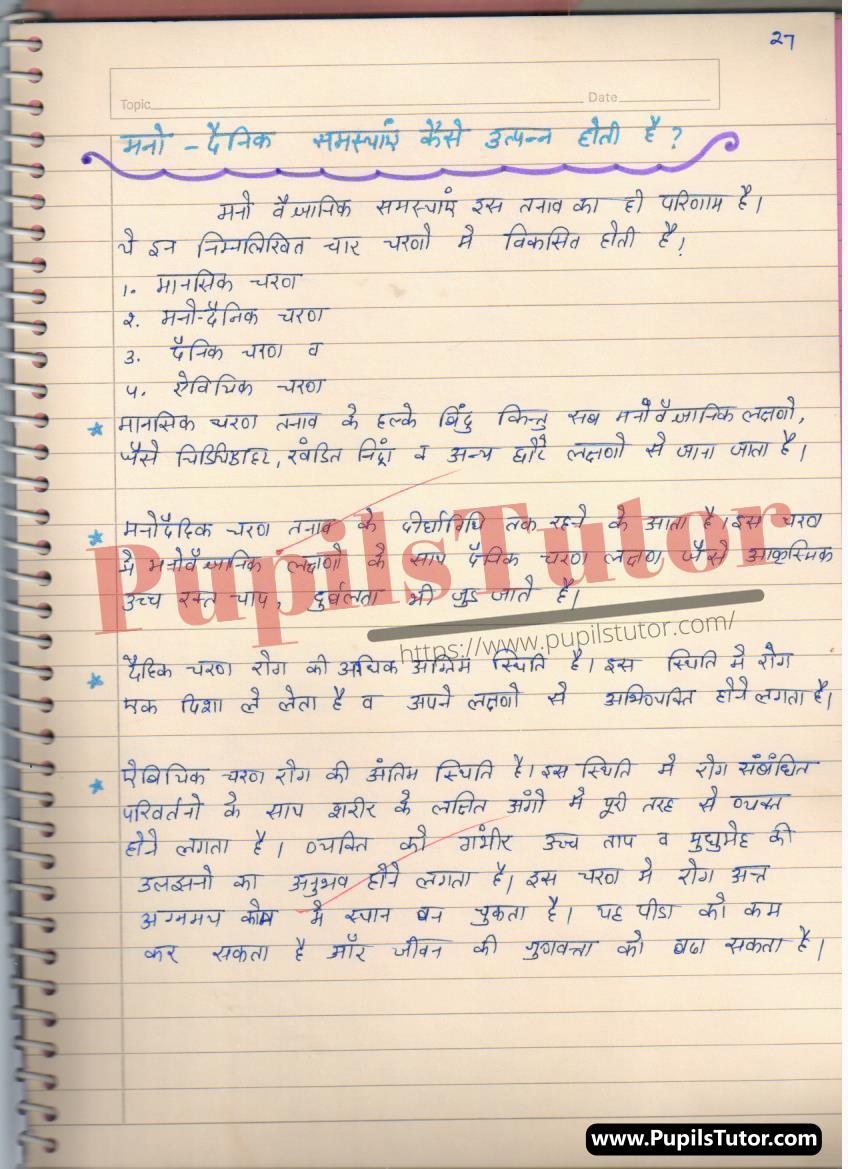 27
Topic
Date
मनो - दैनिक समस्याएं कैसे उत्पन्न होती है ?
मनो वैज्ञानिक समस्याएं इस तनाव का ही परिणाम है।
ये इन निम्नलिखित चार चरणो मे विकसित होती है!
1. मानसिक चरण
2. मनो-दैनिक चरण
3. दैनिक चरण व
4. ऐविधिक चरण
* मानसिक चरण तनाव के हल्के बिंदु किन्तु सब मनोवैज्ञानिक लक्षणो,
जैसे चिडचिडाहट, खंडित निद्रां व अन्य छोटे लक्षणो से जाना जाता है।
* मनोदैदिक चरण तनाव के दीर्घावधि तक रहने के आता है। इस चरण
मे मनोवैज्ञानिक लक्षणो के साथ दैनिक चरण लक्षण जैसे आकस्मिक
उच्च रक्त चाप, दुर्बलता भी जुड जाते है।
PupilsTutor
https://www.pupilstutor.com/
* दैहिक चरण रोग की अधिक अन्तिम स्थिति है। इस स्थिति मे रोग
एक दिशा ले लेता है व अपने लक्षणो से अभिव्यक्ति होने लगता है।
* ऐबिधिक चरण रोग की अंतिम स्थिति है। इस स्थिति मे रोग संबंधित
परिवर्तनो के साथ शरीर के लक्षित अंगो मे पूरी तरह से व्यक्त
होने लगता है। व्यक्ति को गंभीर उच्च ताप व मुधुमेह की
उलझनो का अनुभव होने लगता है। इस चरण मे रोग अन्त
मे स्थान बन चुकता है। यह पीडा को कम
कर सकता है और जीवन की गुणवत्ता को बढा सकता है।
www.PupilsTutor.com